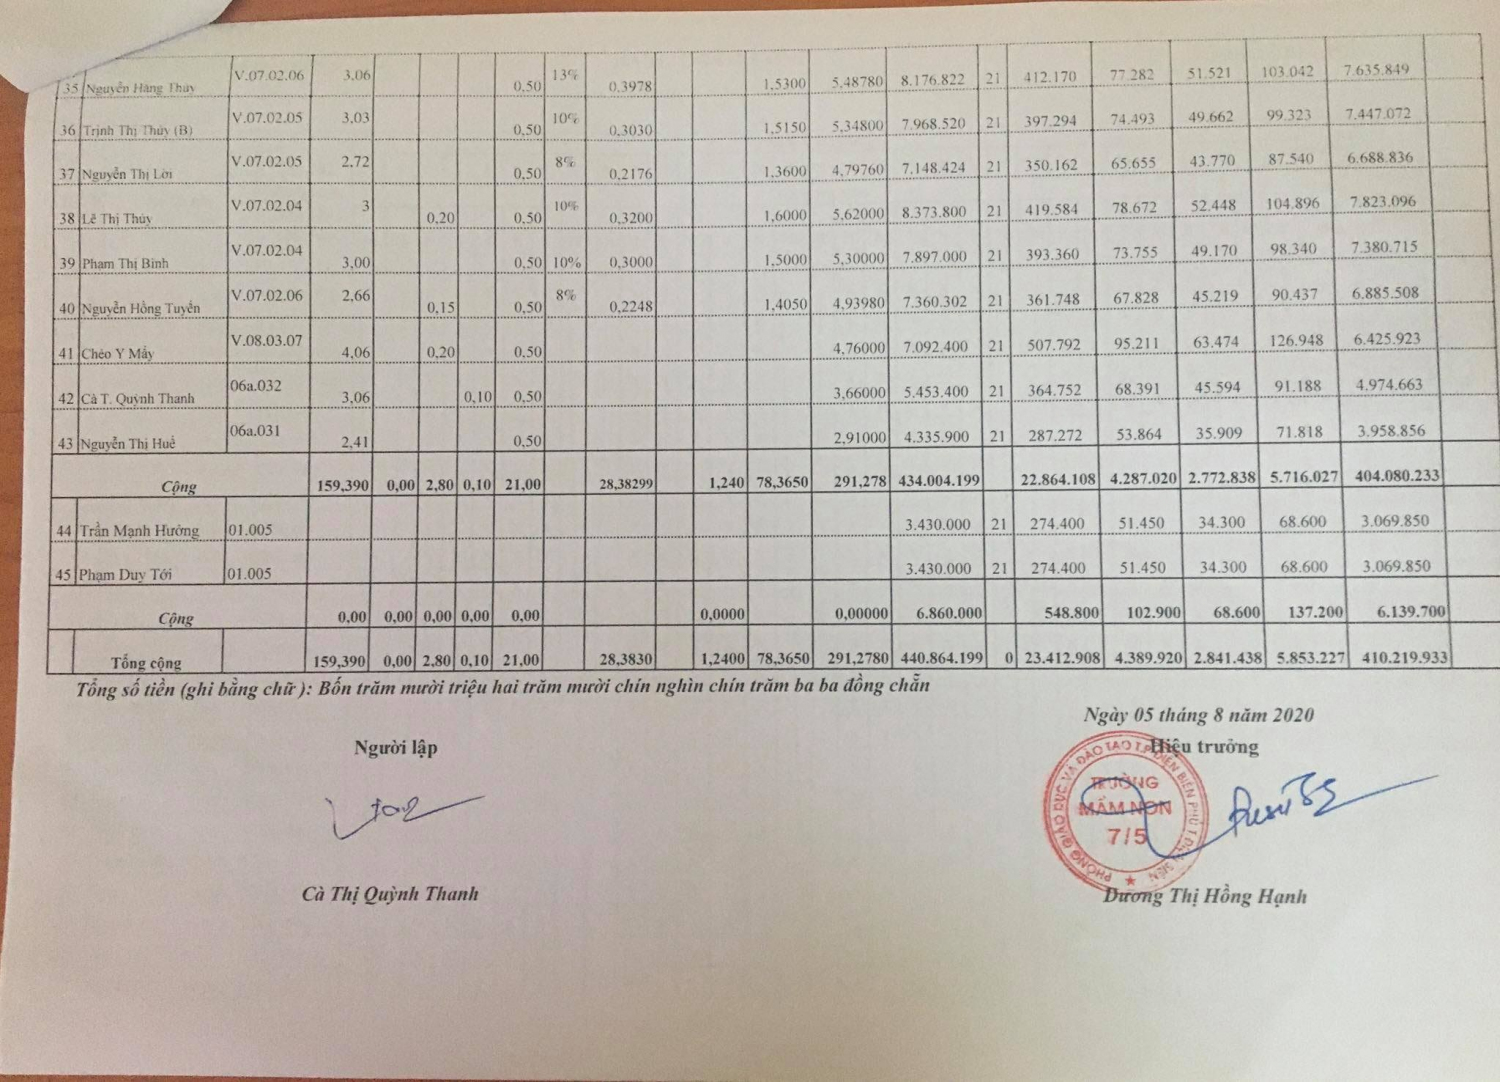 35 Nguyễn Hằng Thúy V.07.02.06 3,06 0,50 13% 0,3978 1,5300 5,48780 8.176.822 21 412.170 77.282 51.521 103.042 7.635.849
36 Trịnh Thị Thúy (B) V.07.02.05 3,03 0,50 10% 0,3030 1,5150 5,34800 7.968.520 21 397.294 74.493 49.662 99.323 7.447.072
37 Nguyễn Thị Lời V.07.02.05 2,72 0,50 8% 0,2176 1,3600 4,79760 7.148.424 21 350.162 65.655 43.770 87.540 6.688.836
38 Lê Thị Thúy V.07.02.04 3 0,20 0,50 10% 0,3200 1,6000 5,62000 8.373.800 21 419.584 78.672 52.448 104.896 7.823.096
39 Phạm Thị Bình V.07.02.04 3,00 0,50 10% 0,3000 1,5000 5,30000 7.897.000 21 393.360 73.755 49.170 98.340 7.380.715
40 Nguyễn Hồng Tuyển V.07.02.06 2,66 0,15 0,50 8% 0,2248 1,4050 4,93980 7.360.302 21 361.748 67.828 45.219 90.437 6.885.508
41 Chẻo Y Mẩy V.08.03.07 4,06 0,20 0,50 4,76000 7.092.400 21 507.792 95.211 63.474 126.948 6.425.923
42 Cà T. Quỳnh Thanh 06a.032 3,06 0,10 0,50 3,66000 5.453.400 21 364.752 68.391 45.594 91.188 4.974.663
43 Nguyễn Thị Huế 06a.031 2,41 0,50 2,91000 4.335.900 21 287.272 53.864 35.909 71.818 3.958.856
Cộng 159,390 0,00 2,80 0,10 21,00 28,38299 1,240 78,3650 291,278 434.004.199 22.864.108 4.287.020 2.772.838 5.716.027 404.080.233
44 Trần Mạnh Hưởng 01.005 3.430.000 21 274.400 51.450 34.300 68.600 3.069.850
45 Phạm Duy Tới 01.005 3.430.000 21 274.400 51.450 34.300 68.600 3.069.850
Cộng 0,00 0,00 0,00 0,00 0,00 0,0000 0,00000 6.860.000 548.800 102.900 68.600 137.200 6.139.700
Tổng cộng 159,390 0,00 2,80 0,10 21,00 28,3830 1,2400 78,3650 291,2780 440.864.199 0 23.412.908 4.389.920 2.841.438 5.853.227 410.219.933
Tổng số tiền (ghi bằng chữ ): Bốn trăm mười triệu hai trăm mười chín nghìn chín trăm ba ba đồng chẵn
Ngày 05 tháng 8 năm 2020
Người lập
Hiệu trưởng
PHÒNG GIÁO DỤC VÀ ĐÀO TẠO T.P ĐIỆN BIÊN PHỦ
TRƯỜNG
MẦM NON
7/5
Cà Thị Quỳnh Thanh
Dương Thị Hồng Hạnh